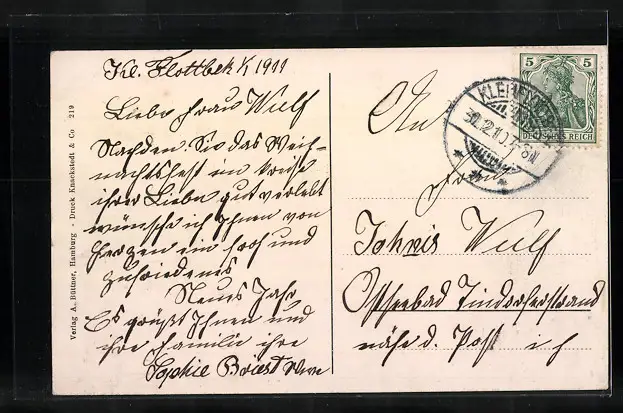 Kl. Flottbek 1/1 1911
Liebe Frau Wulf
Nachdem Sie das Weih-
nachtsfest im Kreise
ihrer Lieben gut verlebt
wünsche ich Ihnen von
Herzen ein froh und
zufriedenes
Neues Jahr
Es grüßt Ihnen und
ihre Familie ihre
Sophie Briest Wwe
Verlag A. Büttner, Hamburg - Druck Knackstedt & Co 219
5 5
DEUTSCHES REICH
KLEIN
30.12.10. 7-8N
An
Frau
Johnis Wulf
Ostseebad
nähe d. Post